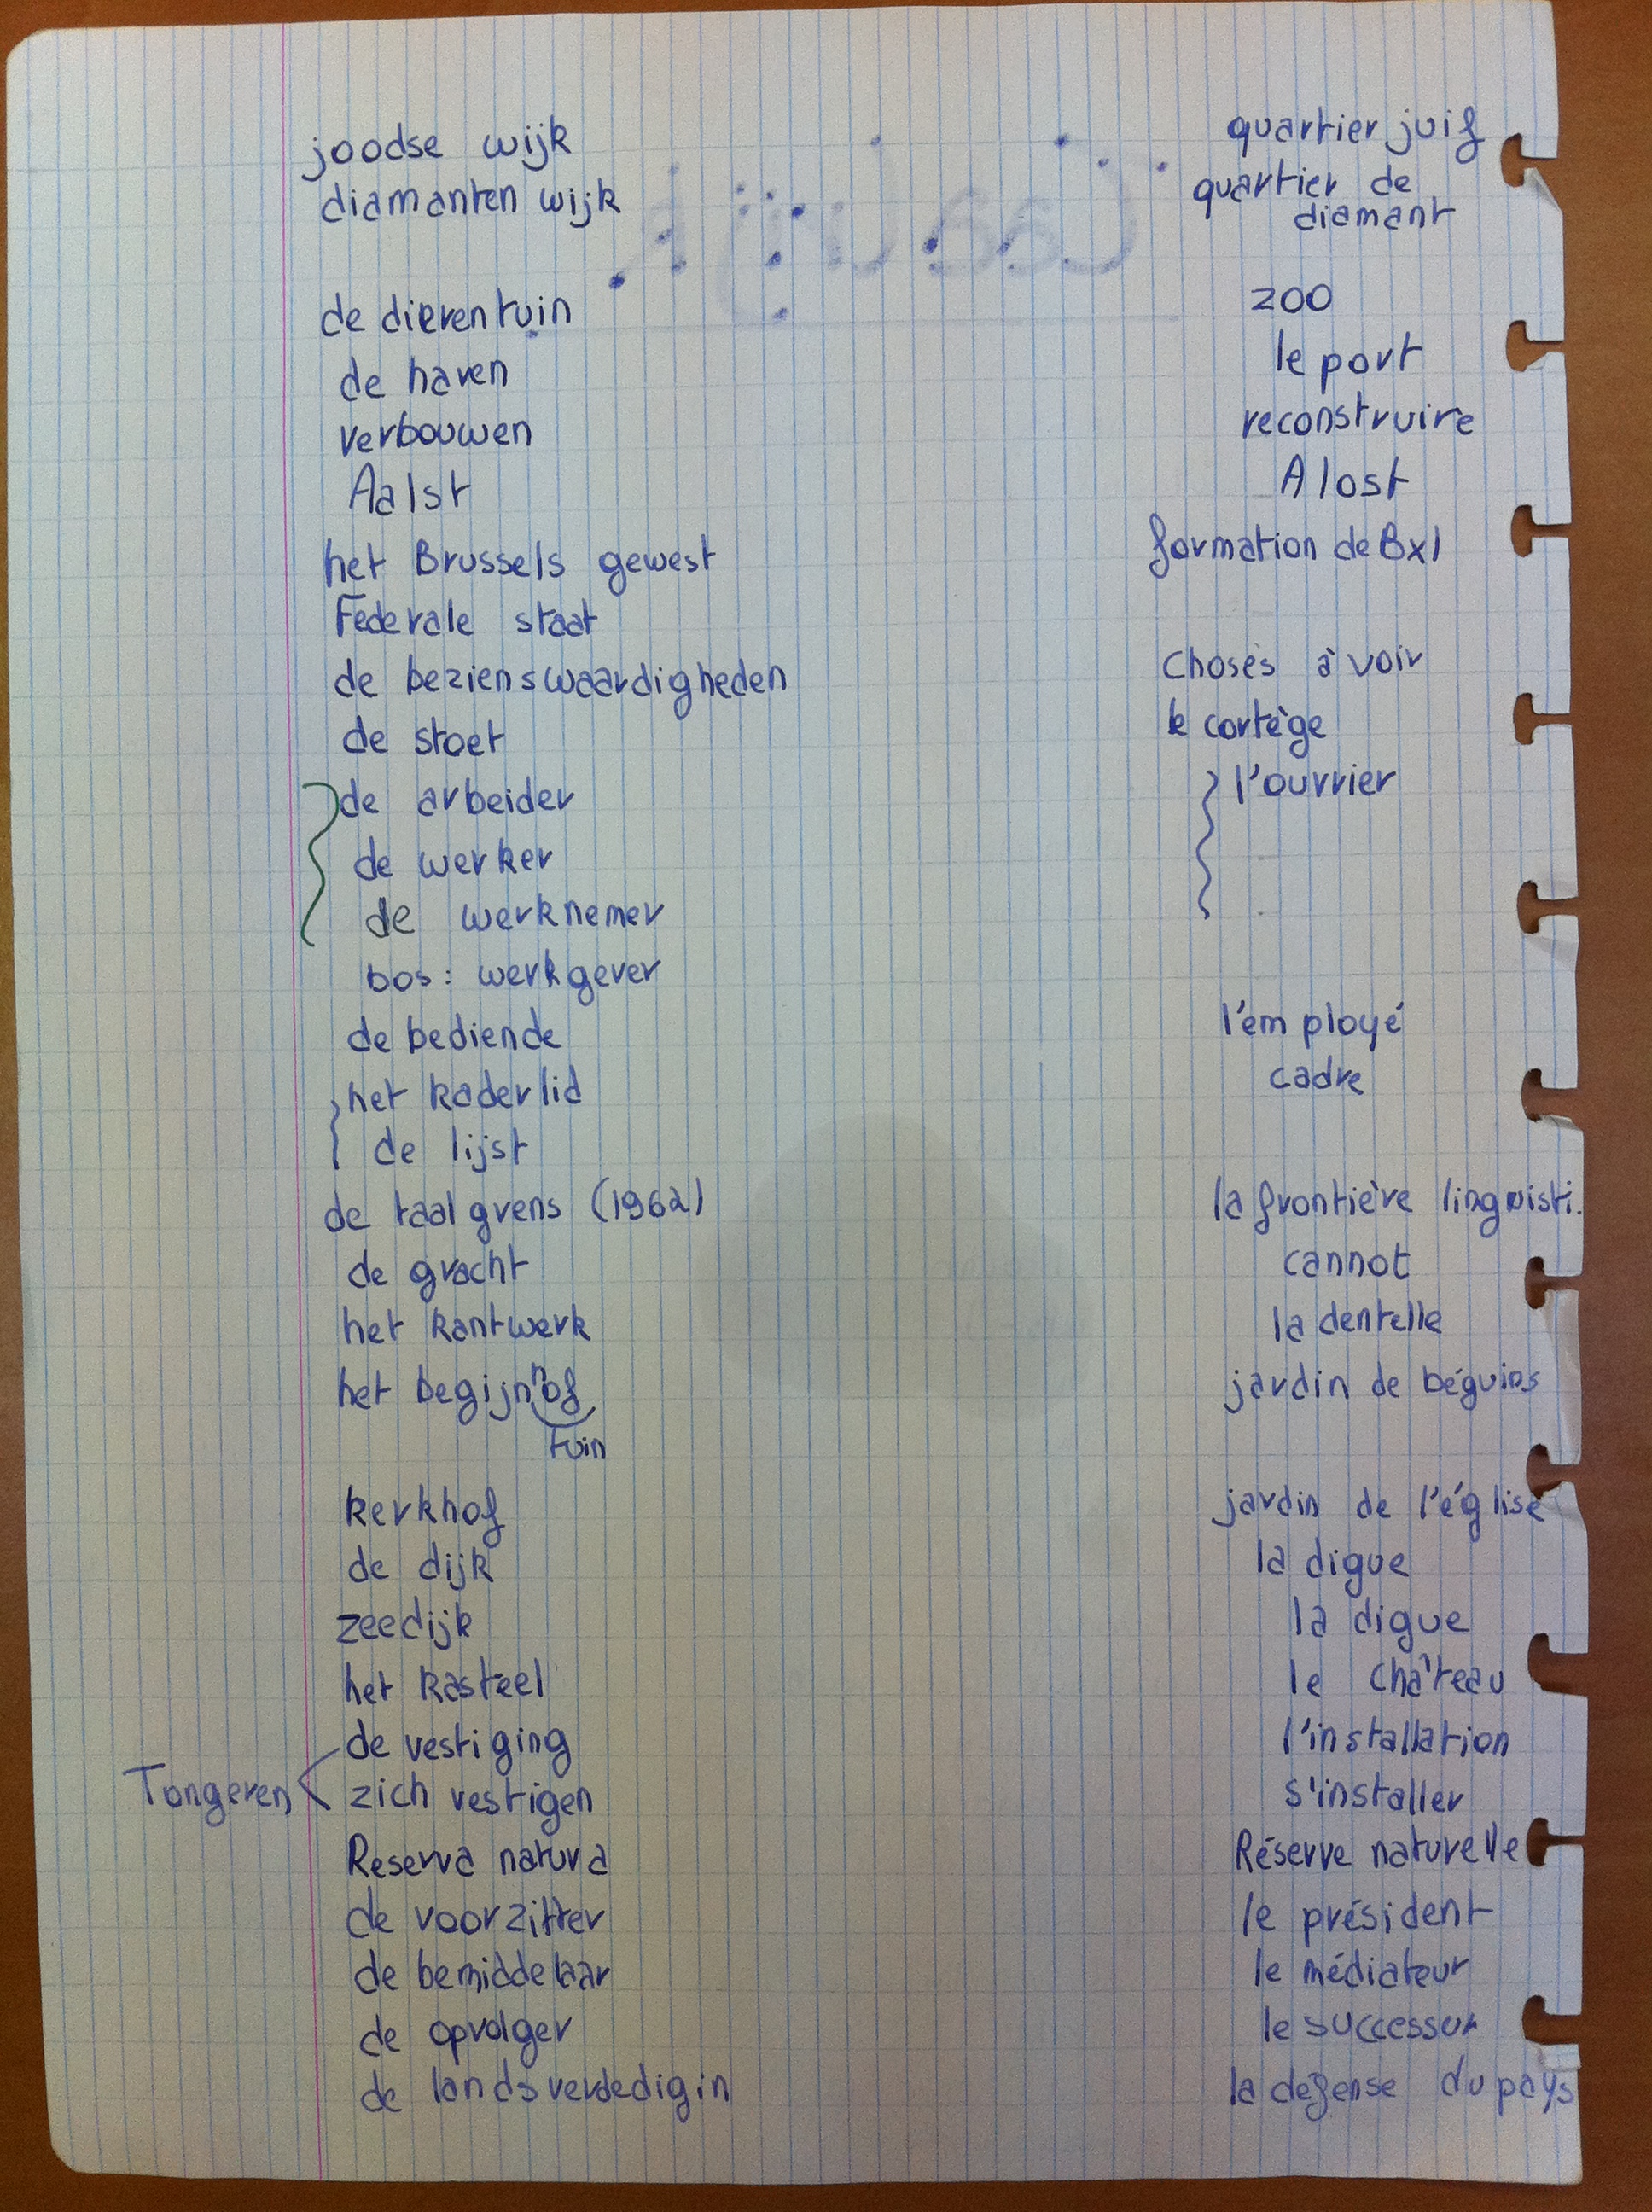 joodse wijk quartier juif
diamanten wijk quartier de
diamant
de dierentuin zoo
de haven le port
verbouwen reconstruire
Aalst Alost
het Brussels gewest formation de Bxl
Federale staat
de bezienswaardigheden choses à voir
de stoet le cortège
de arbeider l'ouvrier
de werker
de werknemer
bos : werkgever
de bediende l'employé
het kaderlid cadre
de lijst
de taalgrens (1962) la frontière linguisti.
de gracht cannot
het kantwerk la dentelle
het begijnhof jardin de béguins
tuin
kerkhof jardin de l'église
de dijk la digue
zeedijk la digue
het kasteel le château
de vestiging l'installation
Tongeren zich vestigen s'installer
Reserva natura Réserve naturelle
de voorzitter le président
de bemiddelaar le médiateur
de opvolger le successur
de landsverdedigin la défense du pays